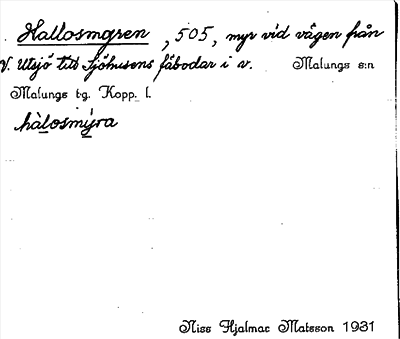 Hallosmyren, 505, myr vid vägen från
V. Utsjö till Sjöhusens fäbodar i v. Malungs s:n
Malungs tg. Kopp. l.
hàlosmýra
Niss Hjalmar Matsson 1931